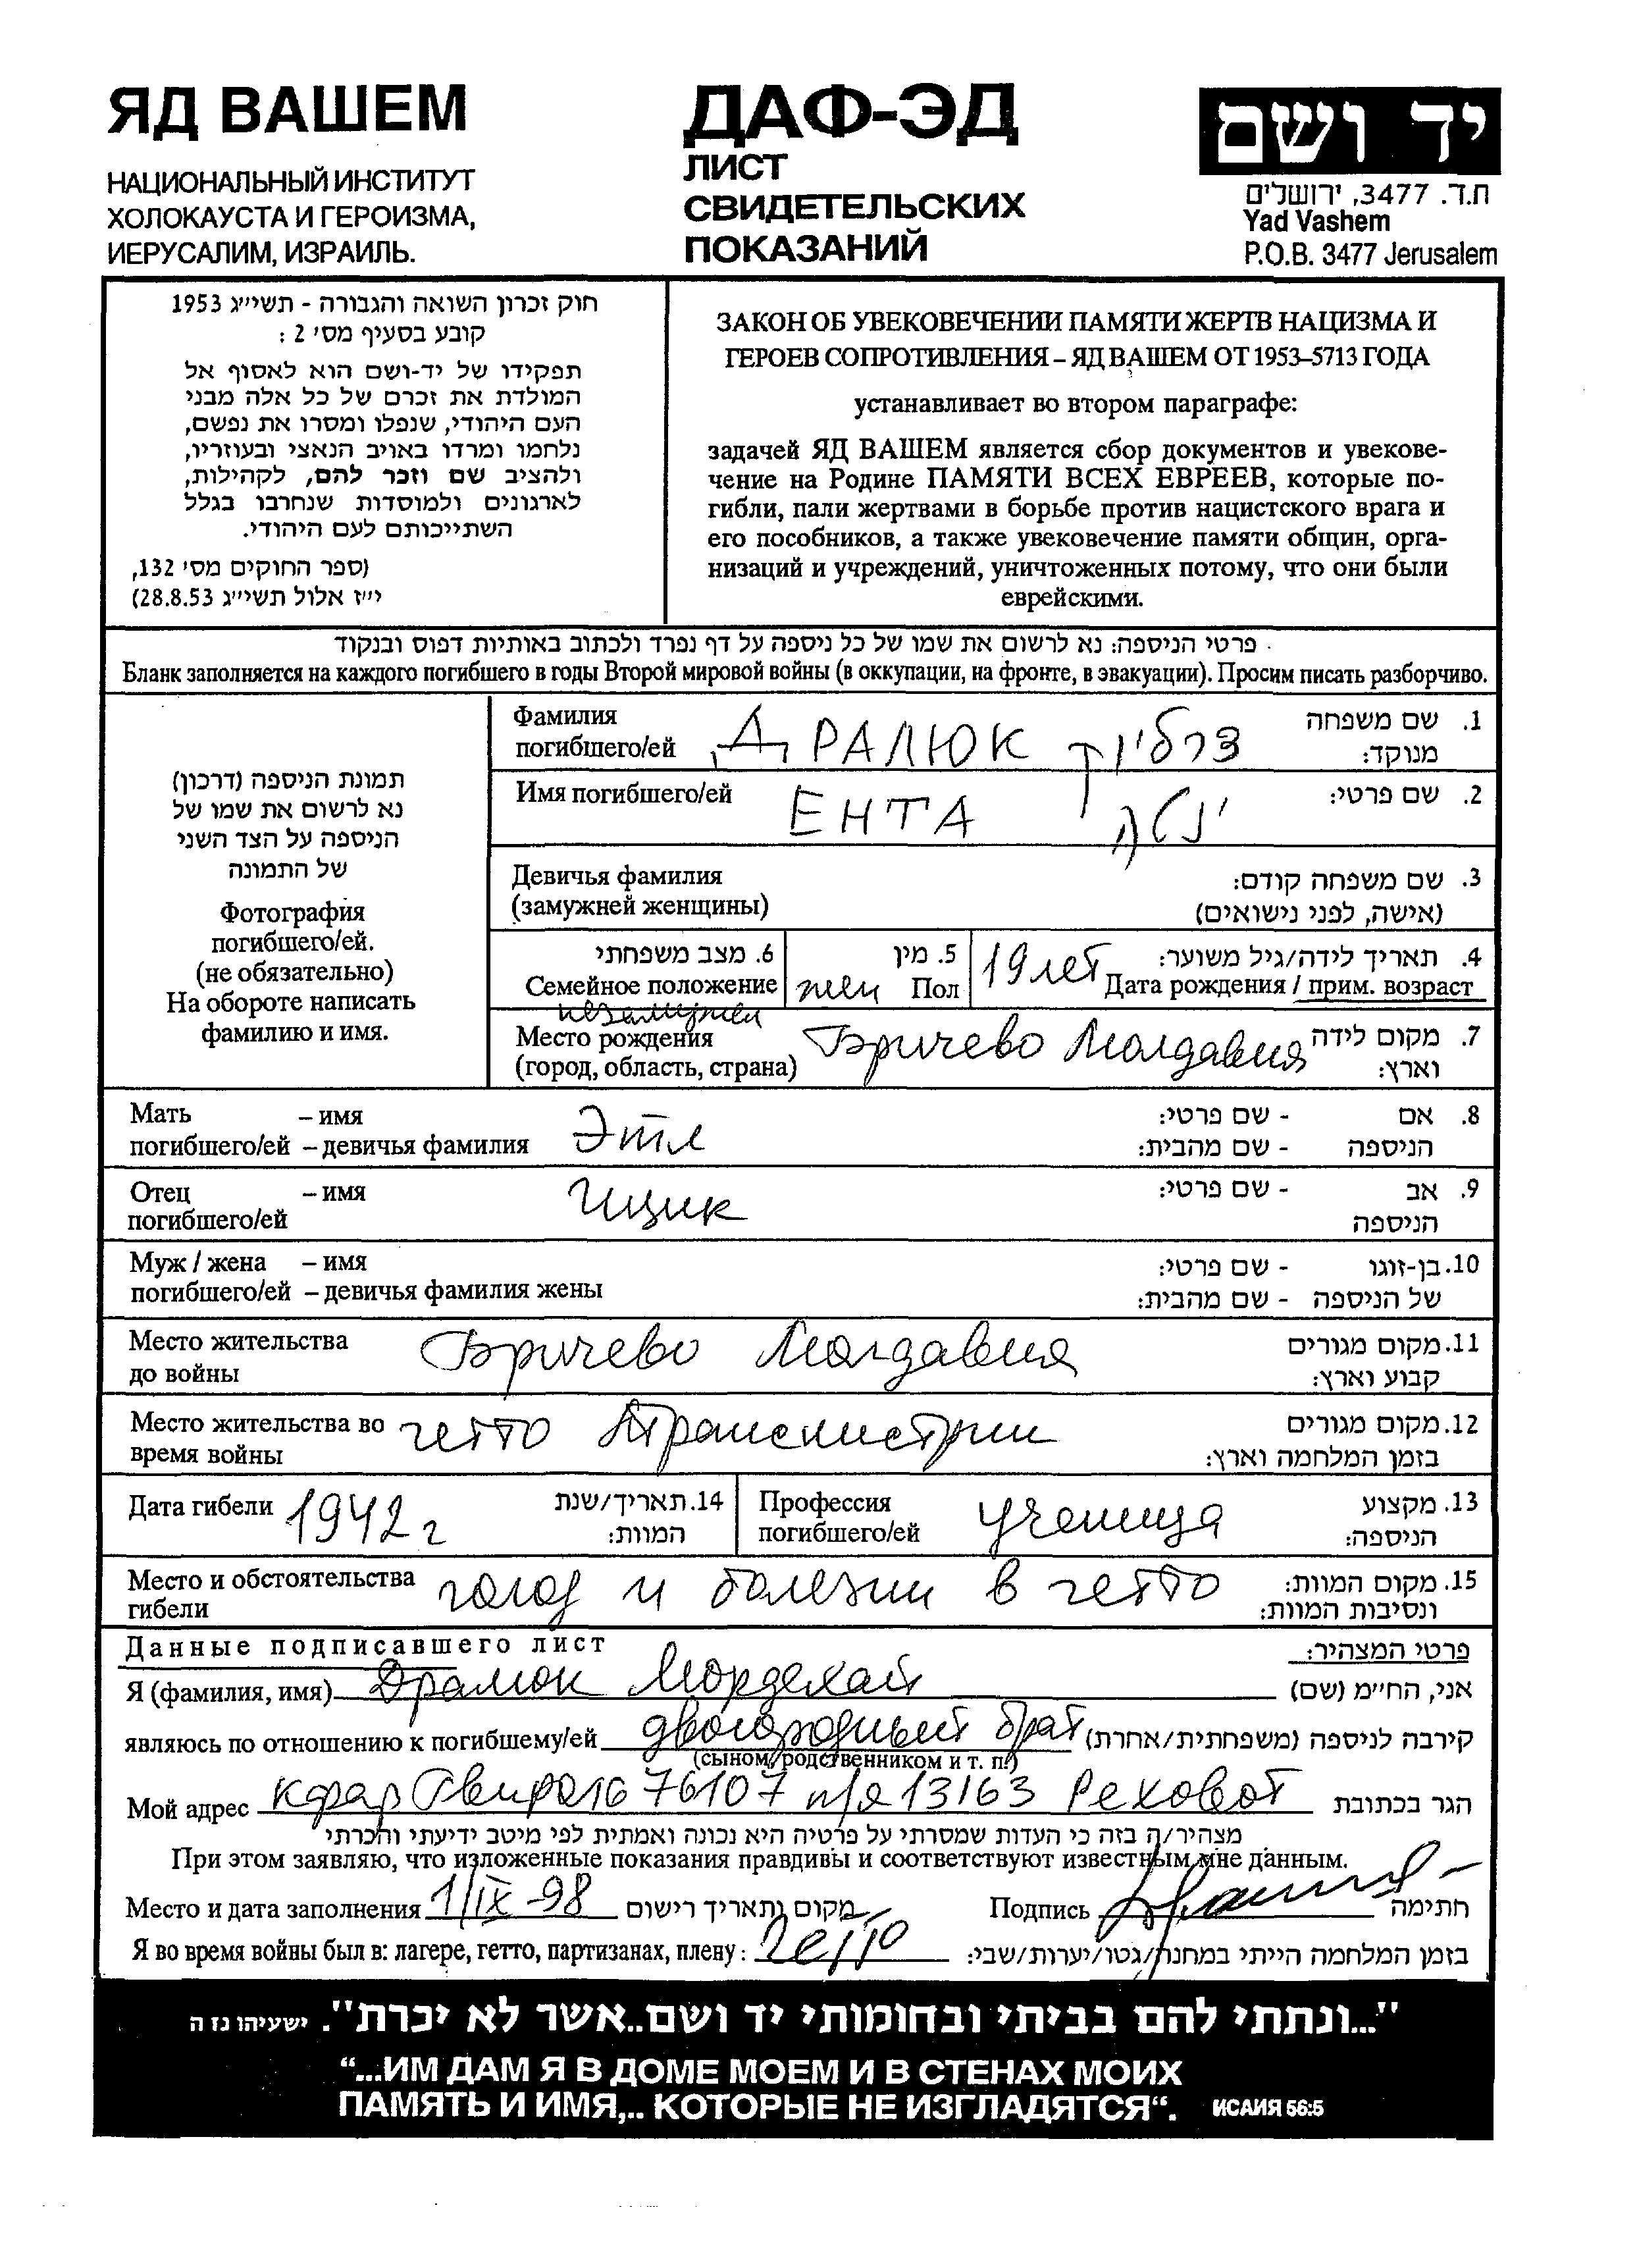 ЯД ВАШЕМ
НАЦИОНАЛЬНЫЙ ИНСТИТУТ
ХОЛОКАУСТА И ГЕРОИЗМА,
ИЕРУСАЛИМ, ИЗРАИЛЬ.
ДАФ-ЭД
ЛИСТ
СВИДЕТЕЛЬСКИХ
ПОКАЗАНИЙ
יד ושם
ת.ד. 3477, ירושלים
Yad Vashem
P.O.B. 3477 Jerusalem
חוק זכרון השואה והגבורה - תשי״ג 1953
קובע בסעיף מס׳ 2 :
תפקידו של יד-ושם הוא לאסוף אל
המולדת את זכרם של כל אלה מבני
העם היהודי, שנפלו ומסרו את נפשם,
נלחמו ומרדו באויב הנאצי ובעוזריו,
ולהציב שם וזכר להם, לקהילות,
לארגונים ולמוסדות שנחרבו בגלל
השתייכותם לעם היהודי.
(ספר החוקים מס׳ 132,
י״ז אלול תשי״ג 28.8.53)
ЗАКОН ОБ УВЕКОВЕЧЕНИИ ПАМЯТИ ЖЕРТВ НАЦИЗМА И
ГЕРОЕВ СОПРОТИВЛЕНИЯ – ЯД ВАШЕМ ОТ 1953–5713 ГОДА
устанавливает во втором параграфе:
задачей ЯД ВАШЕМ является сбор документов и увекове-
чение на Родине ПАМЯТИ ВСЕХ ЕВРЕЕВ, которые по-
гибли, пали жертвами в борьбе против нацистского врага и
его пособников, а также увековечение памяти общин, орга-
низаций и учреждений, уничтоженных потому, что они были
еврейскими.
פרטי הניספה: נא לרשום את שמו של כל ניספה על דף נפרד ולכתוב באותיות דפוס ובנקוד
Бланк заполняется на каждого погибшего в годы Второй мировой войны (в оккупации, на фронте, в эвакуации). Просим писать разборчиво.
תמונת הניספה (דרכון)
נא לרשום את שמו של
הניספה על הצד השני
של התמונה
Фотография
погибшего/ей.
(не обязательно)
На обороте написать
фамилию и имя.
Фамилия ДРАЛЮК דרליוק 1. שם משפחה
погибшего/ей מנוקד:
Имя погибшего/ей ЕНТА ינטה 2. שם פרטי:
Девичья фамилия 3. שם משפחה קודם:
(замужней женщины) (אישה, לפני נישואים)
6. מצב משפחתי 5. מין 19 лет 4. תאריך לידה/גיל משוער:
Семейное положение жен Пол Дата рождения / прим. возраст
незамужем
Место рождения Бричево Молдавия 7. מקום לידה
(город, область, страна) וארץ:
Мать – имя Этл 8. אם - שם פרטי:
погибшего/ей – девичья фамилия הניספה - שם מהבית:
Отец – имя Ицик 9. אב - שם פרטי:
погибшего/ей הניספה
Муж / жена – имя 10. בן-זוגו - שם פרטי:
погибшего/ей – девичья фамилия жены של הניספה - שם מהבית:
Место жительства Бричево Молдавия 11. מקום מגורים
до войны קבוע וארץ:
Место жительства во гетто Транснистрии 12. מקום מגורים
время войны בזמן המלחמה וארץ:
Дата гибели 1942 г 14. תאריך/שנת Профессия ученица 13. מקצוע
המוות: погибшего/ей הניספה:
Место и обстоятельства голод и болезни в гетто 15. מקום המוות:
гибели ונסיבות המוות:
Данные подписавшего лист פרטי המצהיר:
Я (фамилия, имя) Дралюк Мордехай אני, החי״מ (שם)
являюсь по отношению к погибшему/ей двоюродный брат קירבה לניספה (משפחתית/אחרת)
(сыном, родственником и т. п.)
Мой адрес Кфар Гвирол 16 76107 п/я 13163 Реховот הגר בכתובת
מצהיר/ה בזה כי העדות שמסרתי על פרטיה היא נכונה ואמתית לפי מיטב ידיעתי והכרתי
При этом заявляю, что изложенные показания правдивы и соответствуют известным мне данным.
Место и дата заполнения 1/IX-98 מקום ותאריך רישום Подпись חתימה
Я во время войны был в: лагере, гетто, партизанах, плену: гетто בזמן המלחמה הייתי במחנה/גטו/יערות/שבי:
"...ונתתי להם בביתי ובחומותי יד ושם..אשר לא יכרת". ישעיהו נז ה
“...ИМ ДАМ Я В ДОМЕ МОЕМ И В СТЕНАХ МОИХ
ПАМЯТЬ И ИМЯ,.. КОТОРЫЕ НЕ ИЗГЛАДЯТСЯ“. ИСАИЯ 56:5